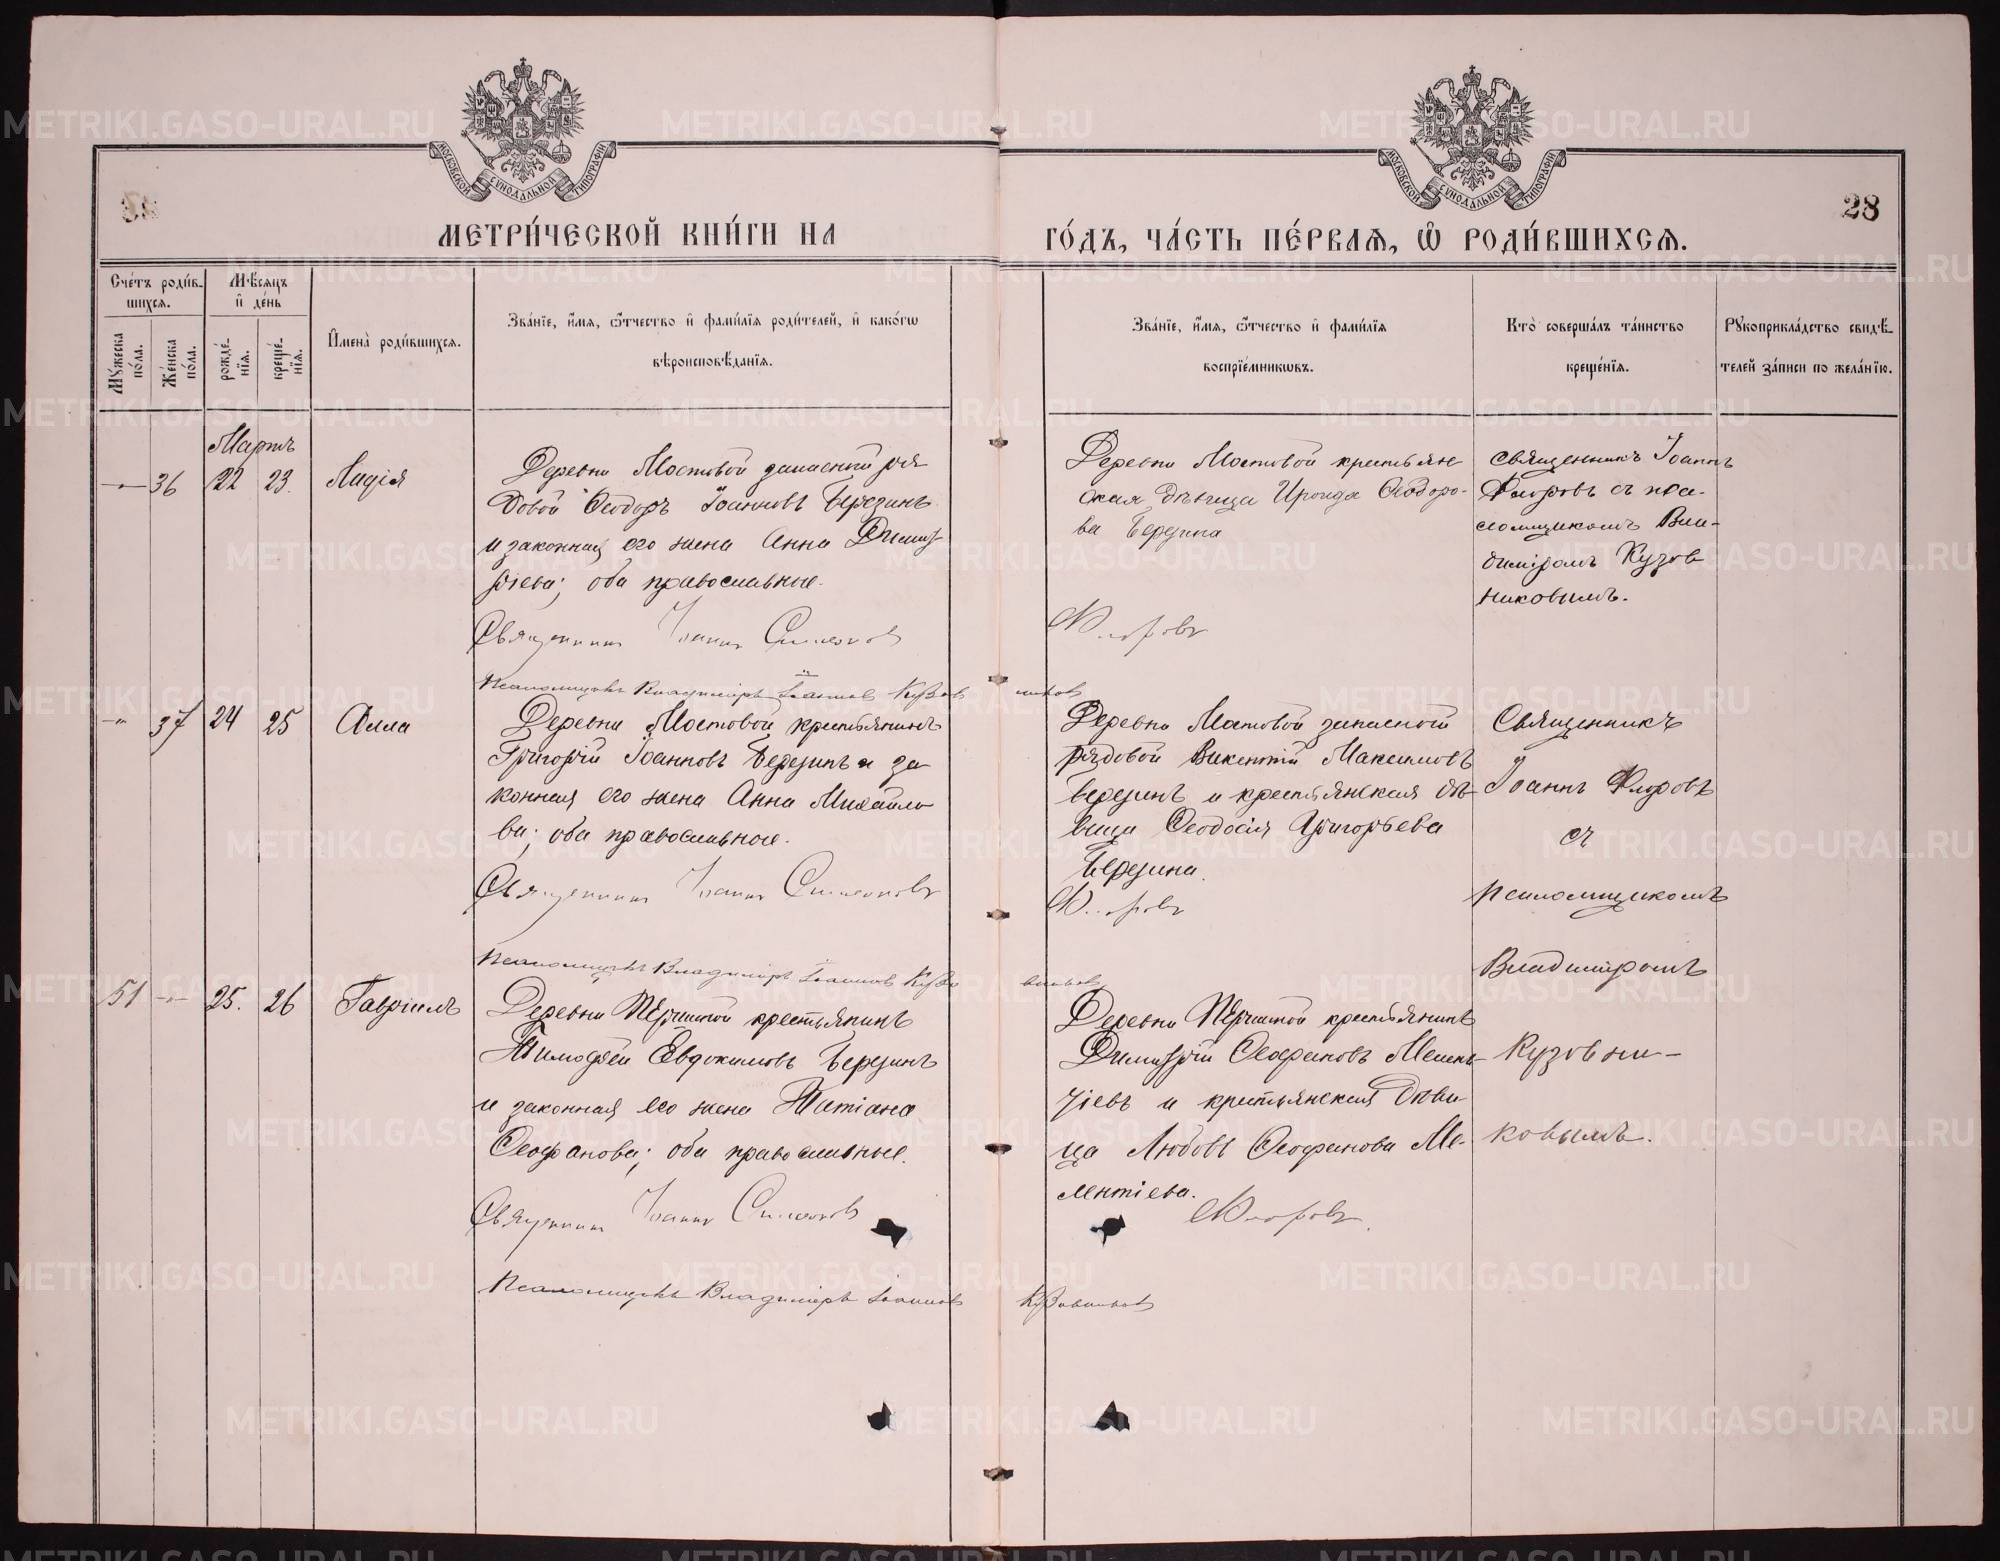 МОСКОВСКОЙ СѴНОДАЛЬНОЙ ТИПОГРАФІИ
МОСКОВСКОЙ СѴНОДАЛЬНОЙ ТИПОГРАФІИ
28
МЕТРИ́ЧЕСКОЙ КНИ́ГИ НА
ГО́ДЪ, ЧА́СТЬ ПЕ́РВАѦ, Ѡ РОДИ́ВШИХСѦ.
Сче́тъ роди́в-
шихсѧ.
Мꙋ́жеска по́ла.
Же́нска по́ла.
Мѣ́сѧцъ и де́нь
рожде́-
нїѧ.
креще́-
нїѧ.
Имена̀ роди́вшихсѧ.
Зва́нїе, и́мѧ, ѻ́тчество и фами́лїѧ роди́телей, и како́гѡ
вѣроисповѣ́данїѧ.
Зва́нїе, и́мѧ, ѻ́тчество и фами́лїѧ
воспрїе́мникѡвъ.
Кто̀ соверша́лъ та́инство
креще́нїѧ.
Рꙋкоприкла́дство свидѣ́-
телей за́писи по жела́нїю.
Мартъ
36 22 23. Лидія
Деревни Мостовой запасной ря
довой Ѳеодоръ Іоанновъ Березинъ
и законная его жена Анна Димит
ріева; оба православные.
Священникъ Іоаннъ Симеоновъ
Псаломщикъ Владиміръ Іоанновъ Кузовниковъ
Деревни Мостовой крестьян
ская дѣвица Ираида Ѳеодоро-
ва Березина
Флоровъ
Священникъ Іоаннъ
Флоровъ съ пса-
ломщикомъ Вла-
диміромъ Кузов
никовымъ.
37 24 25 Алла
Деревни Мостовой крестьянинъ
Григорій Іоанновъ Березинъ и за
конная его жена Анна Михайло
ва; оба православные.
Священникъ Іоаннъ Симеоновъ
Псаломщикъ Владиміръ Іоанновъ Кузовниковъ
Деревни Мостовой запасной
рядовой Викентій Максимовъ
Березинъ и крестьянская дѣ-
вица Ѳеодосія Григорьева
Березина.
Флоровъ
Священникъ
Іоаннъ Флоровъ
съ
псаломщикомъ
Владиміромъ
Кузовни-
ковымъ.
51 25. 26 Гавріилъ
Деревни крестьянинъ
Тимофей Евдокимовъ Березинъ
и законная его жена Татіана
Ѳеофанова; оба православные.
Священникъ Іоаннъ Симеоновъ
Псаломщикъ Владиміръ Іоанновъ Кузовниковъ
Деревни крестьянинъ
Димитрій Ѳеофановъ Мелен-
тіевъ и крестьянская дѣви-
ца Любовь Ѳеофанова Ме-
лентіева.
Флоровъ.
METRIKI.GASO-URAL.RU